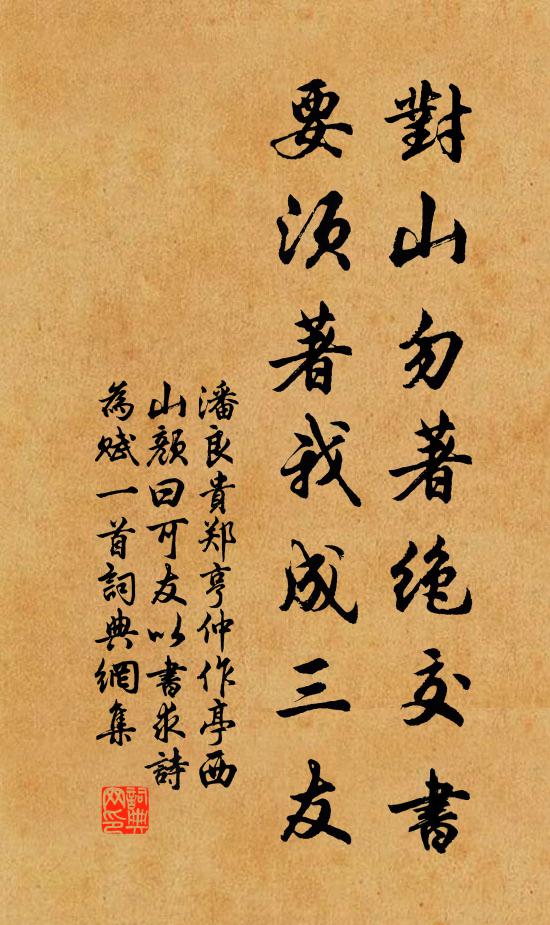 對山勿著絶交書
要須著我成三友
潘良貴郑亨仲作亭西
山顏曰可友以書求詩
為赋一首詞典網集
詞典网印